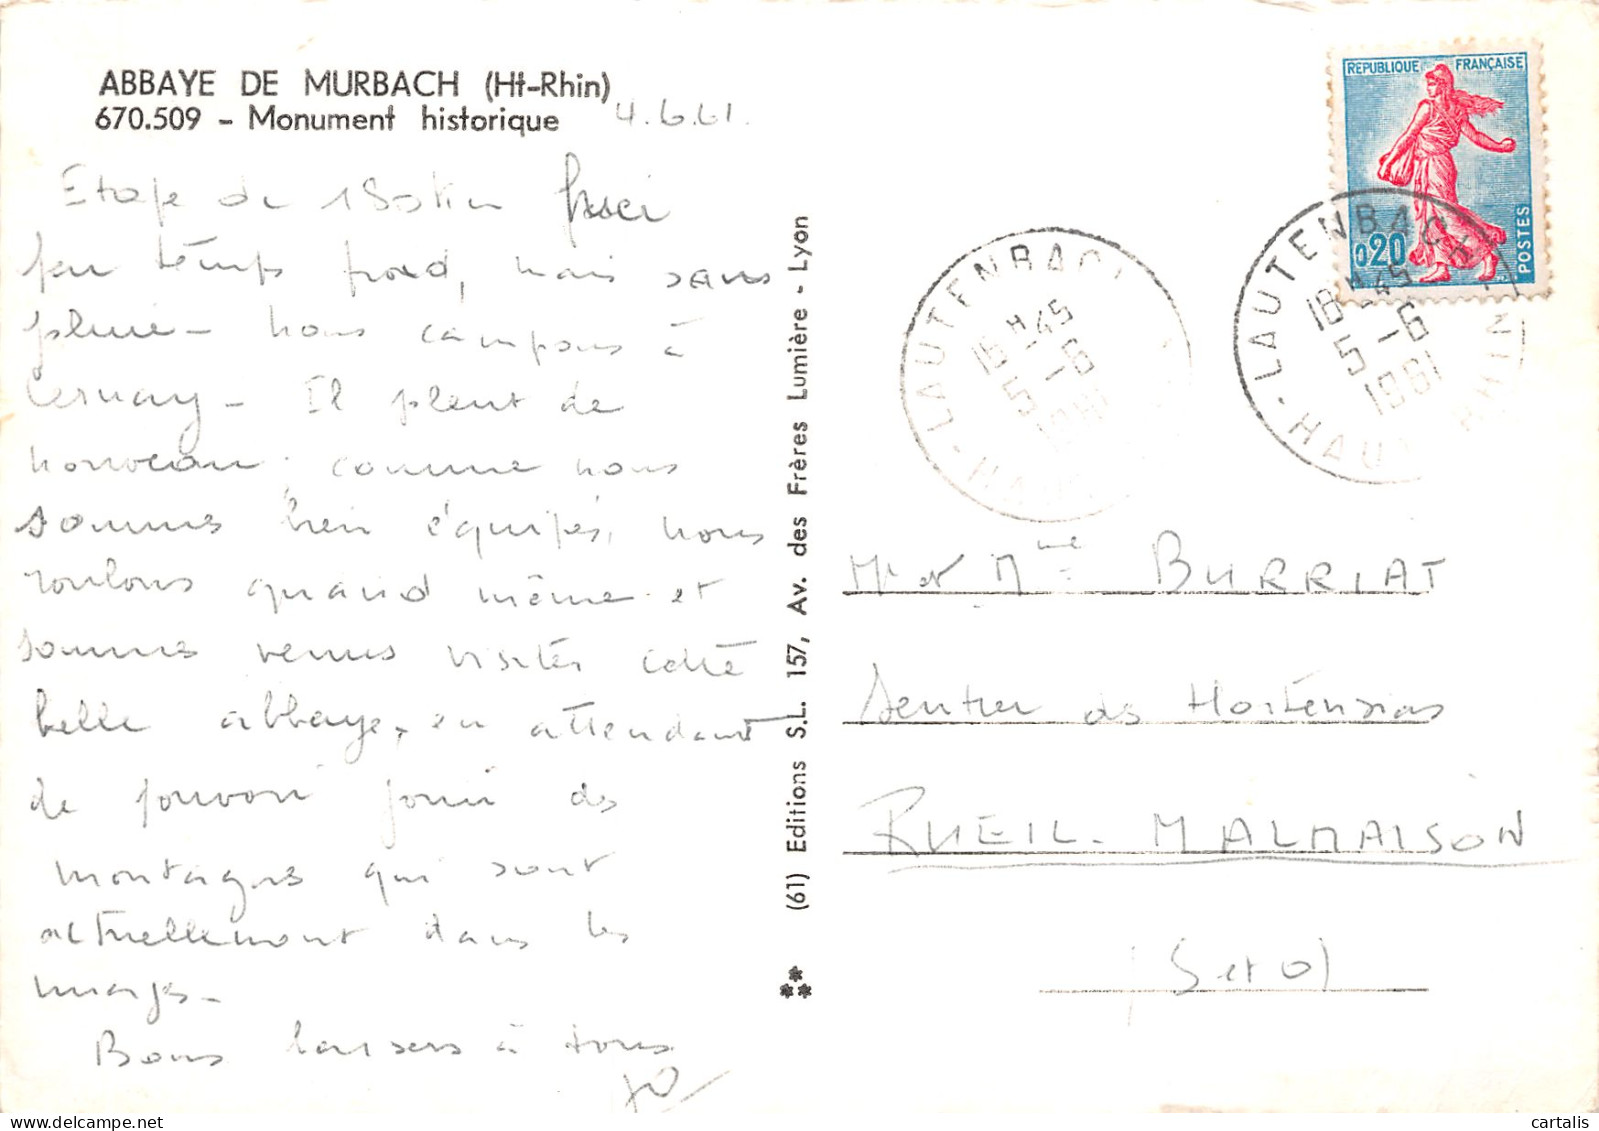 ABBAYE DE MURBACH (Ht-Rhin)
670.509 - Monument historique
4.6.61.
Etape de
par temps froid, mais sans
pluie - nous campons à
Cernay - Il pleut de
nouveau, comme nous
sommes bien équipés, nous
roulons quand même et
sommes venus visiter cette
belle abbaye, en attendant
de pouvoir jouir des
montagnes qui sont
actuellement dans les
nuages -
Bons baisers à tous
(61) Editions S.L. 157, Av. des Frères Lumière - Lyon
REPUBLIQUE FRANÇAISE
0,20
POSTES
LAUTENBACH
18 H 45
5 - 6
1961
- HAUT
LAUTENBACH
18 H 45
5 - 6
1961
- HAUT RHIN
Mr et Mme BURRIAT
Sentier des Hortensias
RUEIL-MALMAISON
(S et O)
cartalis